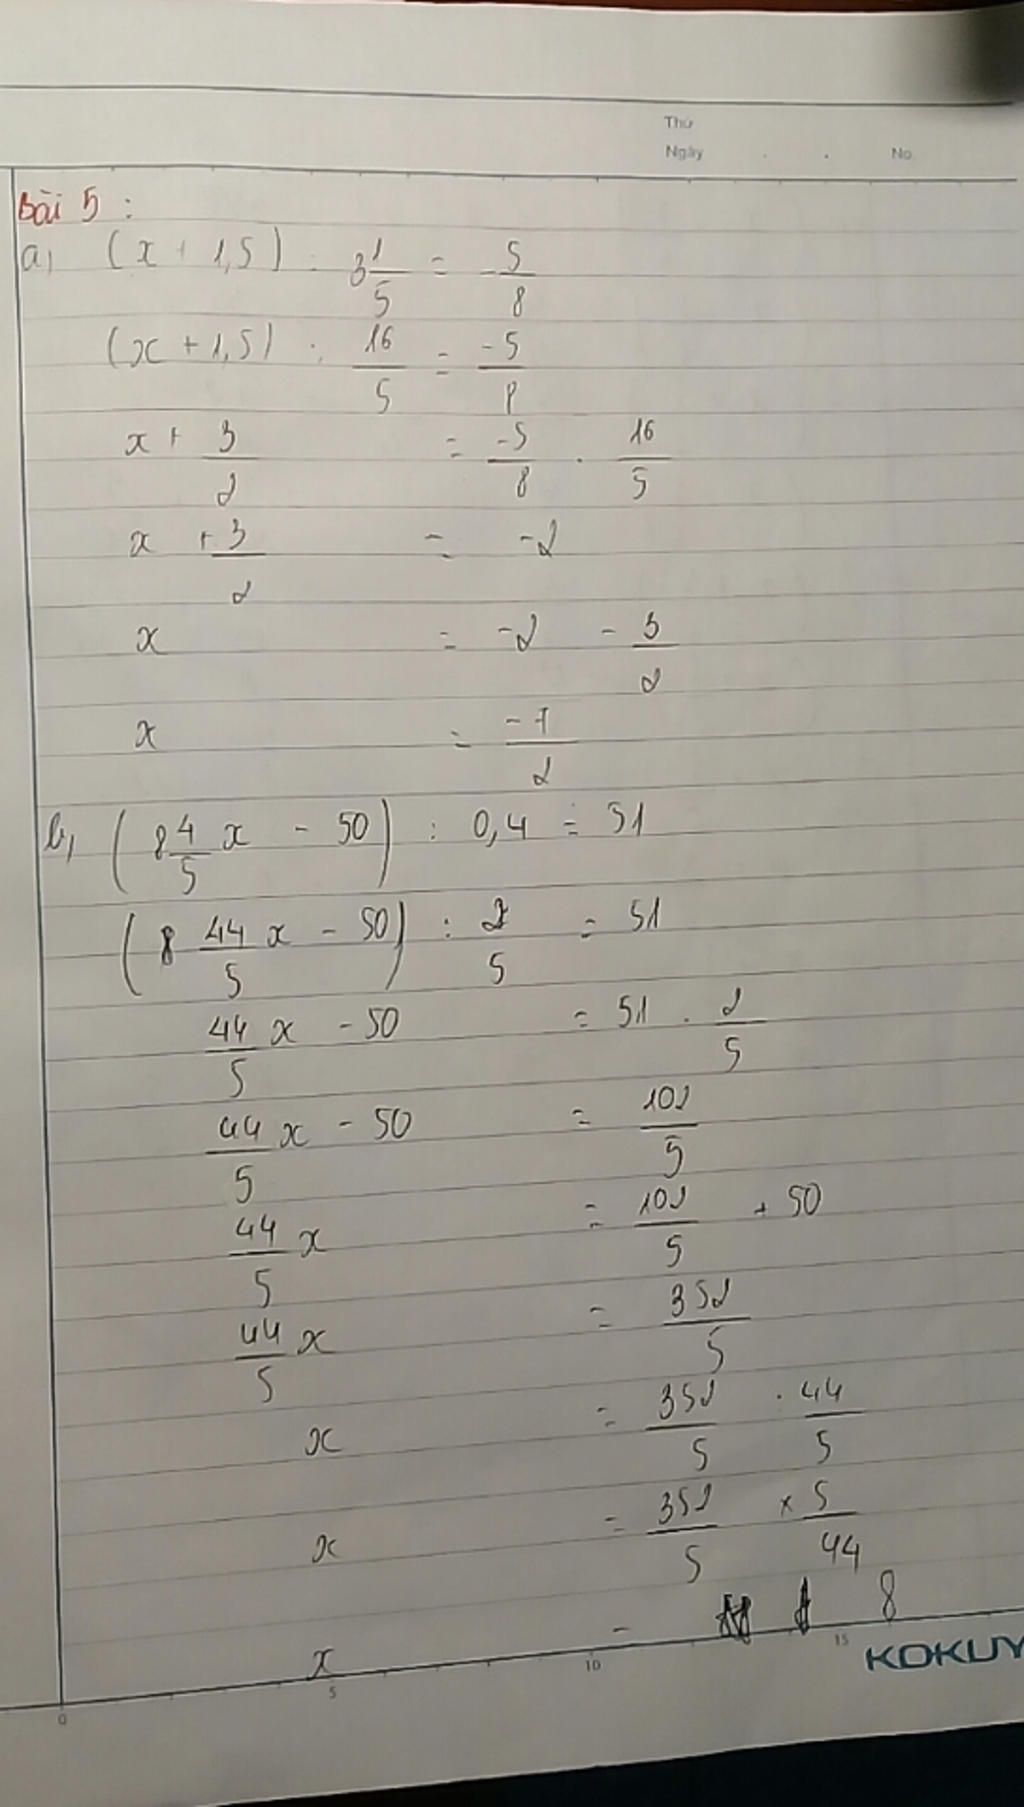 Thứ
Ngày . . No.
Bài 5 :
a, (x + 1,5) : 3 1/5 = -5/8
(x + 1,5) : 16/5 = -5/8
x + 3/2 = -5/8 . 16/5
x + 3/2 = -2
x = -2 - 3/2
x = -7/2
b, (8 4/5 x - 50) : 0,4 = 51
(8 44/5 x - 50) : 2/5 = 51
44/5 x - 50 = 51 . 2/5
44/5 x - 50 = 102/5
44/5 x = 102/5 + 50
44/5 x = 352/5
x = 352/5 : 44/5
x = 352/5 × 5/44
x = 8
0 5 10 15 KOKUY